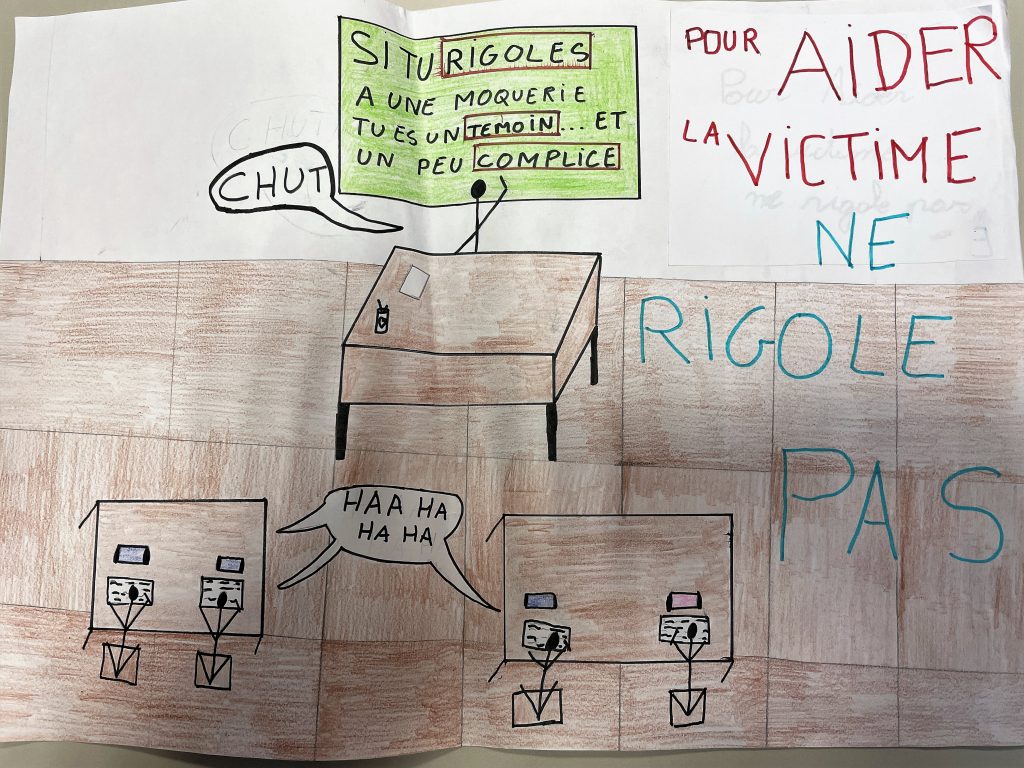 SI TU RIGOLES
A UNE MOQUERIE
TU ES UN TEMOIN... ET
UN PEU COMPLICE
CHUT
POUR AIDER
LA VICTIME
NE
RIGOLE
PAS
HAA HA
HA HA